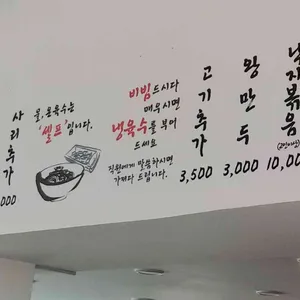 사리추가
000
물,온육수는
'셀프'입니다.
비빔드시다
매우시면
냉육수를 부어
드세요
직원에게 말씀하시면
가져다 드립니다.
고기추가
3,500
왕만두
3,000
낙지볶음
10,00